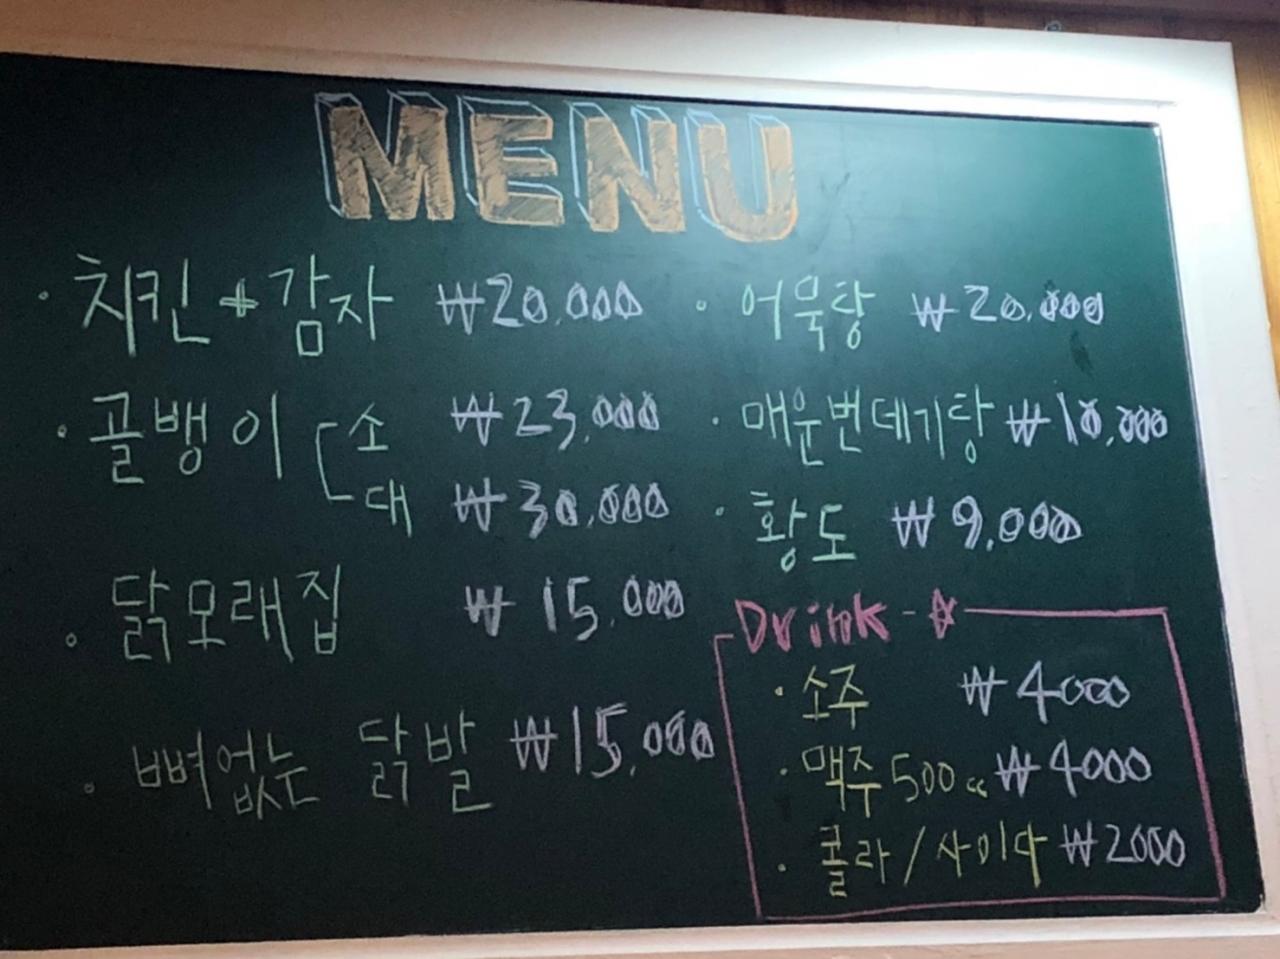 MENU
· 치킨+감자 ₩20,000
· 골뱅이 [ 소 ₩23,000
대 ₩30,000
· 닭모래집 ₩15,000
· 뼈없는 닭발 ₩15,000
· 어묵탕 ₩20,000
· 매운번데기탕 ₩10,000
· 황도 ₩9,000
Drink-☆
· 소주 ₩4000
· 맥주 500cc ₩4000
· 콜라/사이다 ₩2000